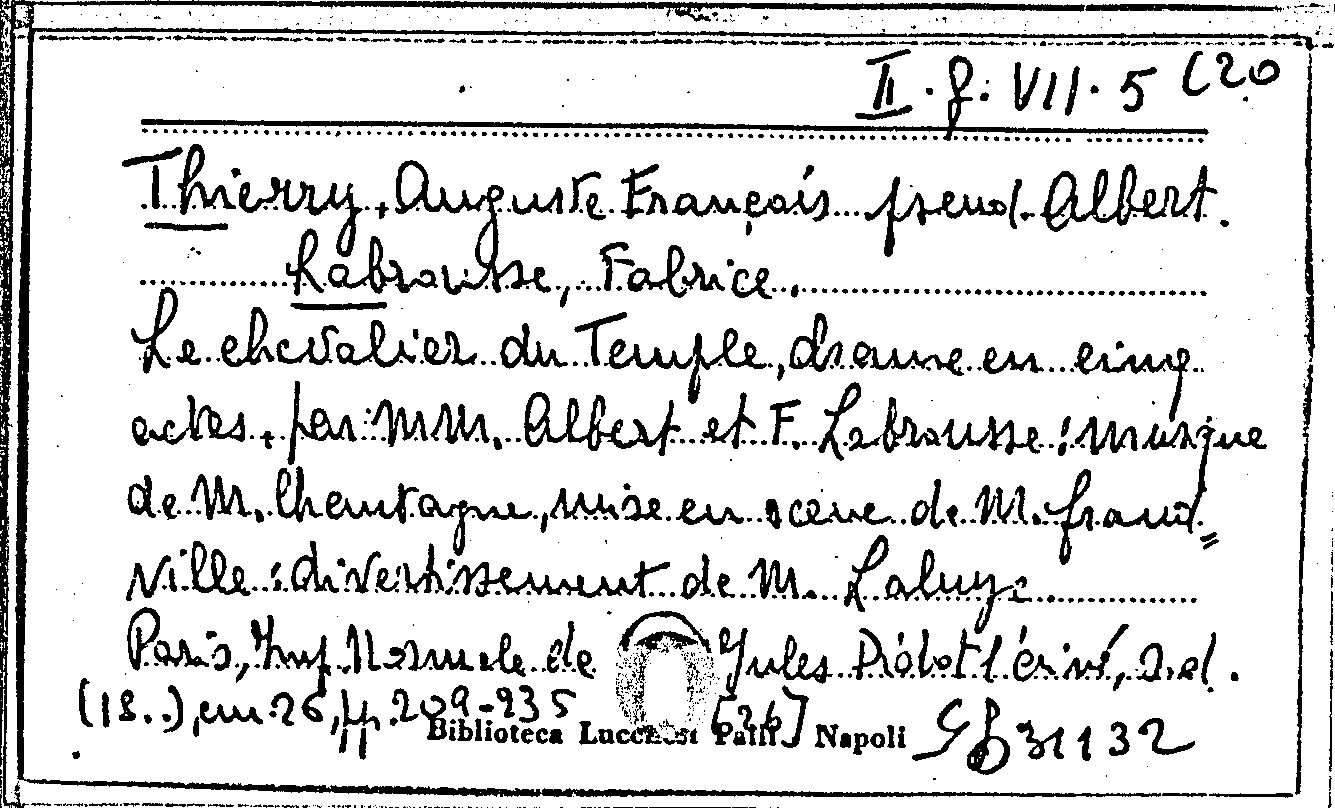 II. g. VII. 5 (20
Thierry, Auguste Français pseud. Albert.
Labrousse, Fabrice.
Le chevalier du Temple, drame en cinq
actes, par MM. Albert et F. Labrousse: musique
de M. Chautagne, mise en scène de M. grand=
ville: divertissement de M. Laluyé
Paris, Imp. Normale de Jules Didot l'ainé, s.d.
(18..), cm. 26, pp. 209-235 [26]
Biblioteca Lucchesi Palli Napoli 31132